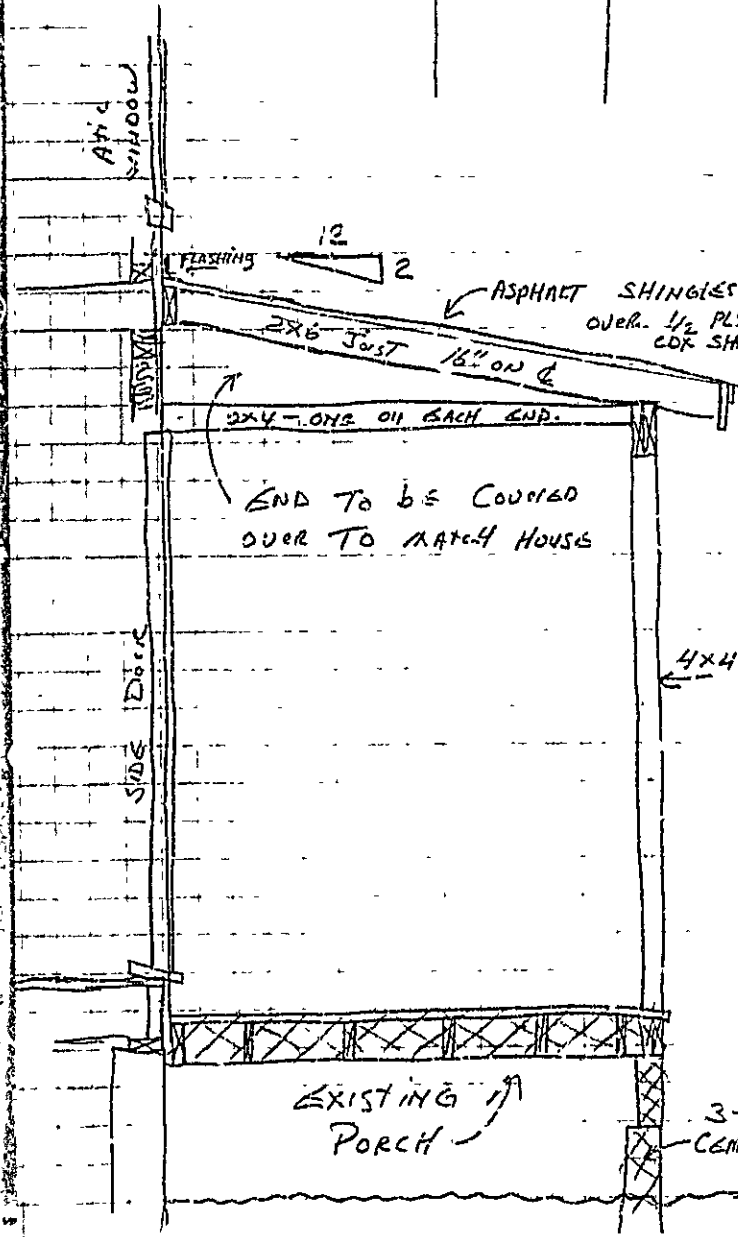 Attic
WINDOW
FLASHING
12
2
ASPHALT SHINGLES
OVER 1/2 PL
CDX SH
2X6 JOIST 16" ON ℄
2X4 - ONE ON EACH END.
END TO bE COVERED
OVER TO MATCH HOUSE
SIDE DOOR
4X4
EXISTING
PORCH
3-
CEM